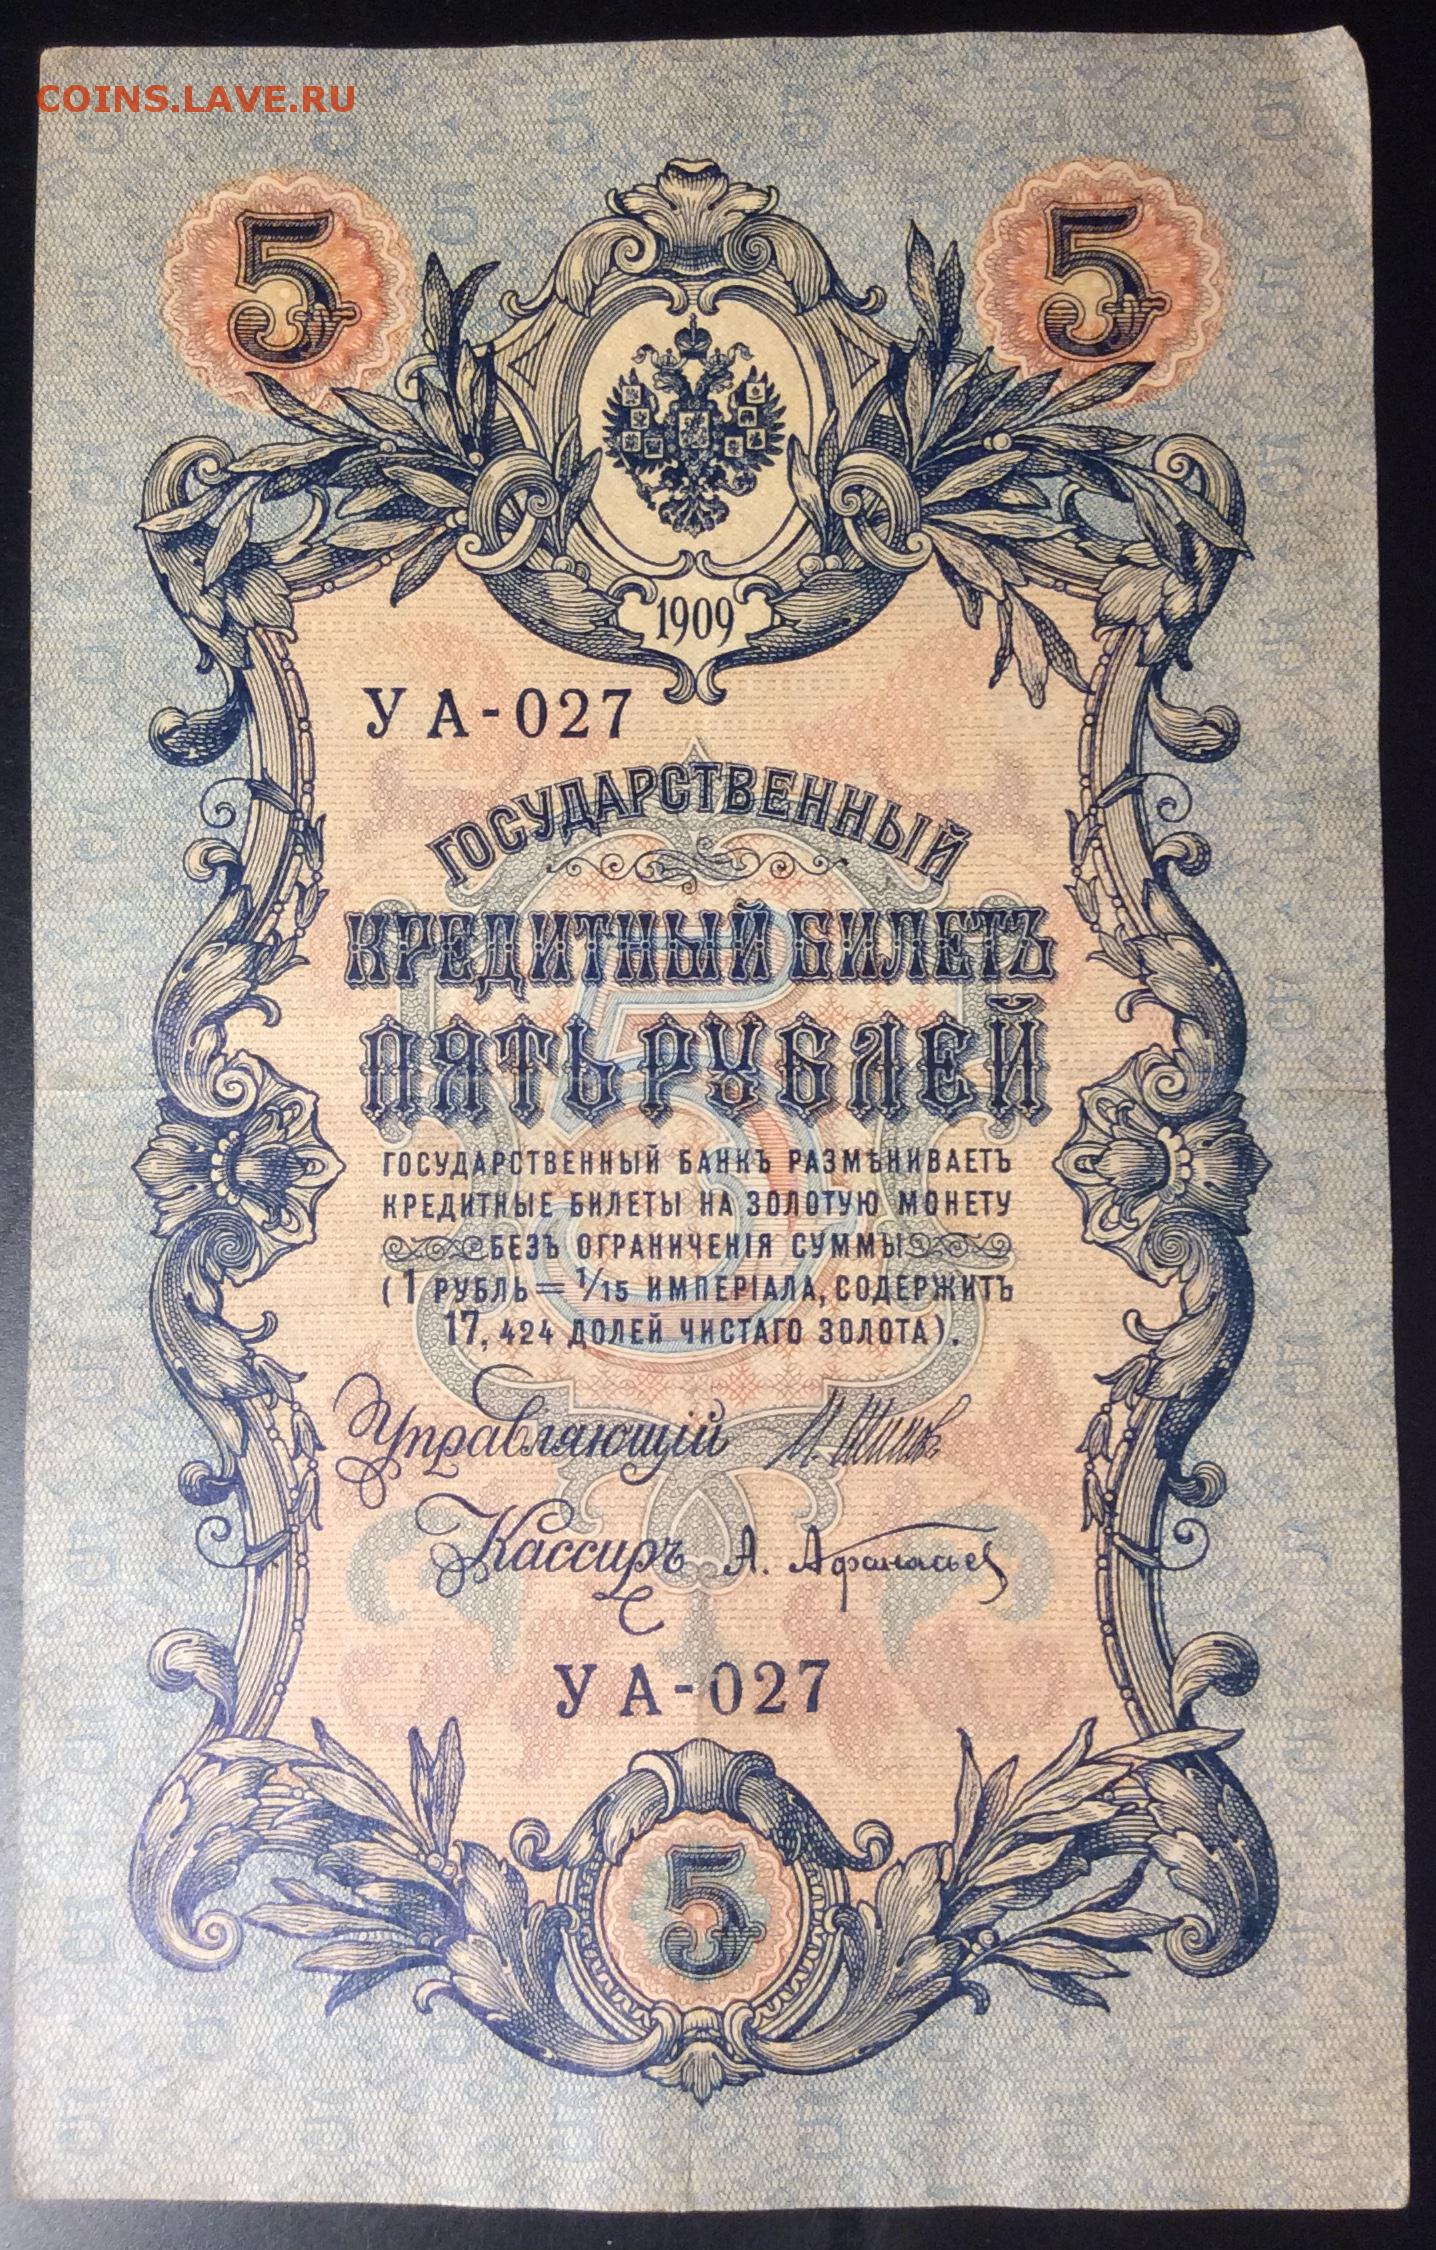 COINS.LAVE.RU
5 5
1909
УА-027
ГОСУДАРСТВЕННЫЙ
КРЕДИТНЫЙ БИЛЕТЪ
ПЯТЬ РУБЛЕЙ
ГОСУДАРСТВЕННЫЙ БАНКЪ РАЗМѢНИВАЕТЪ
КРЕДИТНЫЕ БИЛЕТЫ НА ЗОЛОТУЮ МОНЕТУ
БЕЗЪ ОГРАНИЧЕНІЯ СУММЫ
(1 РУБЛЬ = 1/15 ИМПЕРІАЛА, СОДЕРЖИТЪ
17,424 ДОЛЕЙ ЧИСТАГО ЗОЛОТА).
Управляющій И. Шипов
Кассиръ А. Афанасьев
УА-027
5